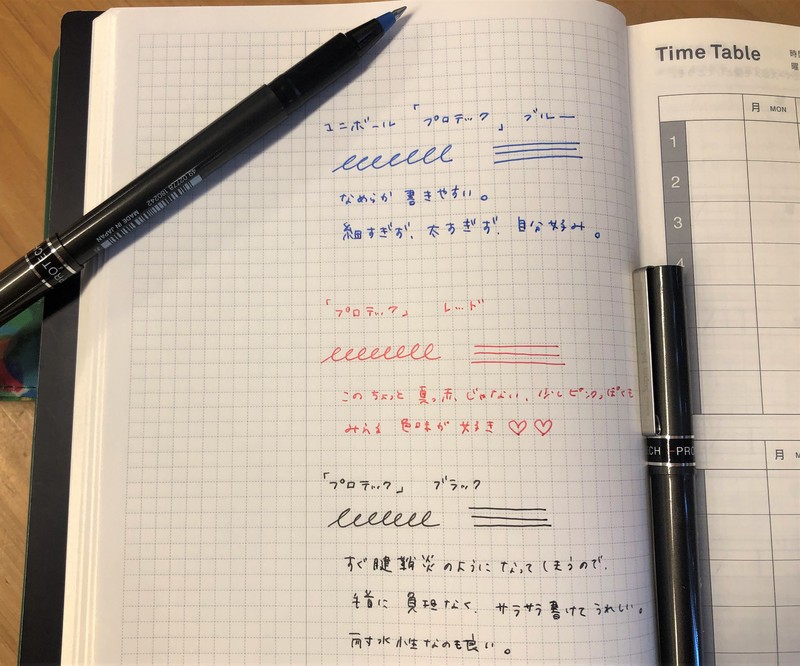 ユニボール「プロテック」 ブルー
なめらか 書きやすい。
細すぎず、太すぎず、自分好み。
「プロテック」 レッド
このちょっと 真っ赤、じゃない、少しピンクっぽくも
みえる 色味が 好き ♡♡
「プロテック」 ブラック
すぐ腱鞘炎のようになってしまうので、
手首に 負担なく、サラサラ書けてうれしい。
耐水性なのも良い。
MADE IN JAPAN
PROTECH
Time Table
月 MON
1
2
3
4
月
TECH
PRO